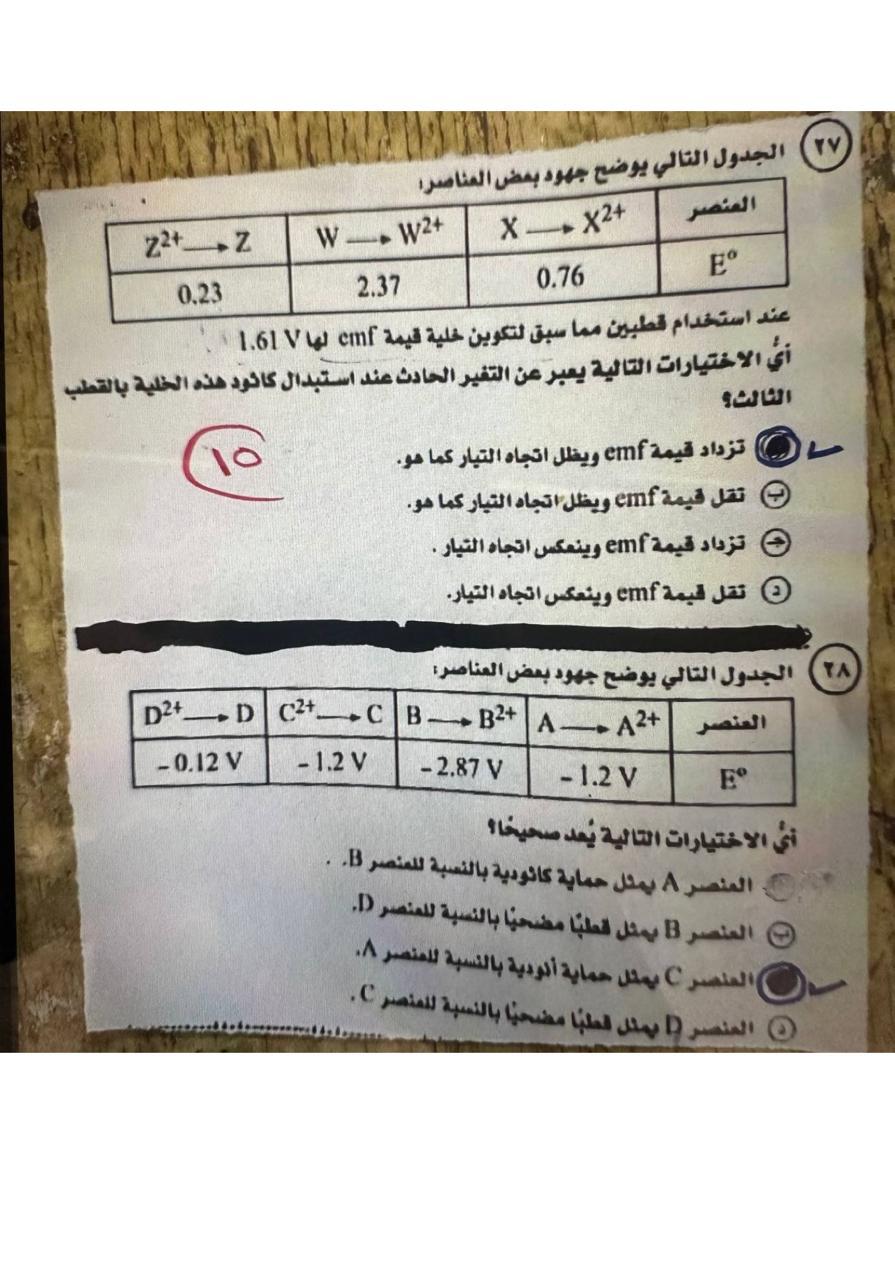 ٢٧ الجدول التالي يوضح جهود بعض العناصر:
العنصر X → X2+ W → W2+ Z2+ → Z
Eº 0.76 2.37 0.23
عند استخدام قطبين مما سبق لتكوين خلية قيمة emf لها 1.61 V
أيُّ الاختيارات التالية يعبر عن التغير الحادث عند استبدال كاثود هذه الخلية بالقطب
الثالث؟
تزداد قيمة emf ويظل اتجاه التيار كما هو.
١٥
ب تقل قيمة emf ويظل اتجاه التيار كما هو.
جـ تزداد قيمة emf وينعكس اتجاه التيار .
د تقل قيمة emf وينعكس اتجاه التيار.
٢٨ الجدول التالي يوضح جهود بعض العناصر:
العنصر A → A2+ B → B2+ C2+ → C D2+ → D
Eº – 1.2 V – 2.87 V – 1.2 V – 0.12 V
أيُّ الاختيارات التالية يُعد صحيحًا؟
العنصر A يمثل حماية كاثودية بالنسبة للعنصر B.
ب العنصر B يمثل قطبًا مضحيًا بالنسبة للعنصر D.
العنصر C يمثل حماية أنودية بالنسبة للعنصر A.
د العنصر D يمثل قطبًا مضحيًا بالنسبة للعنصر C.